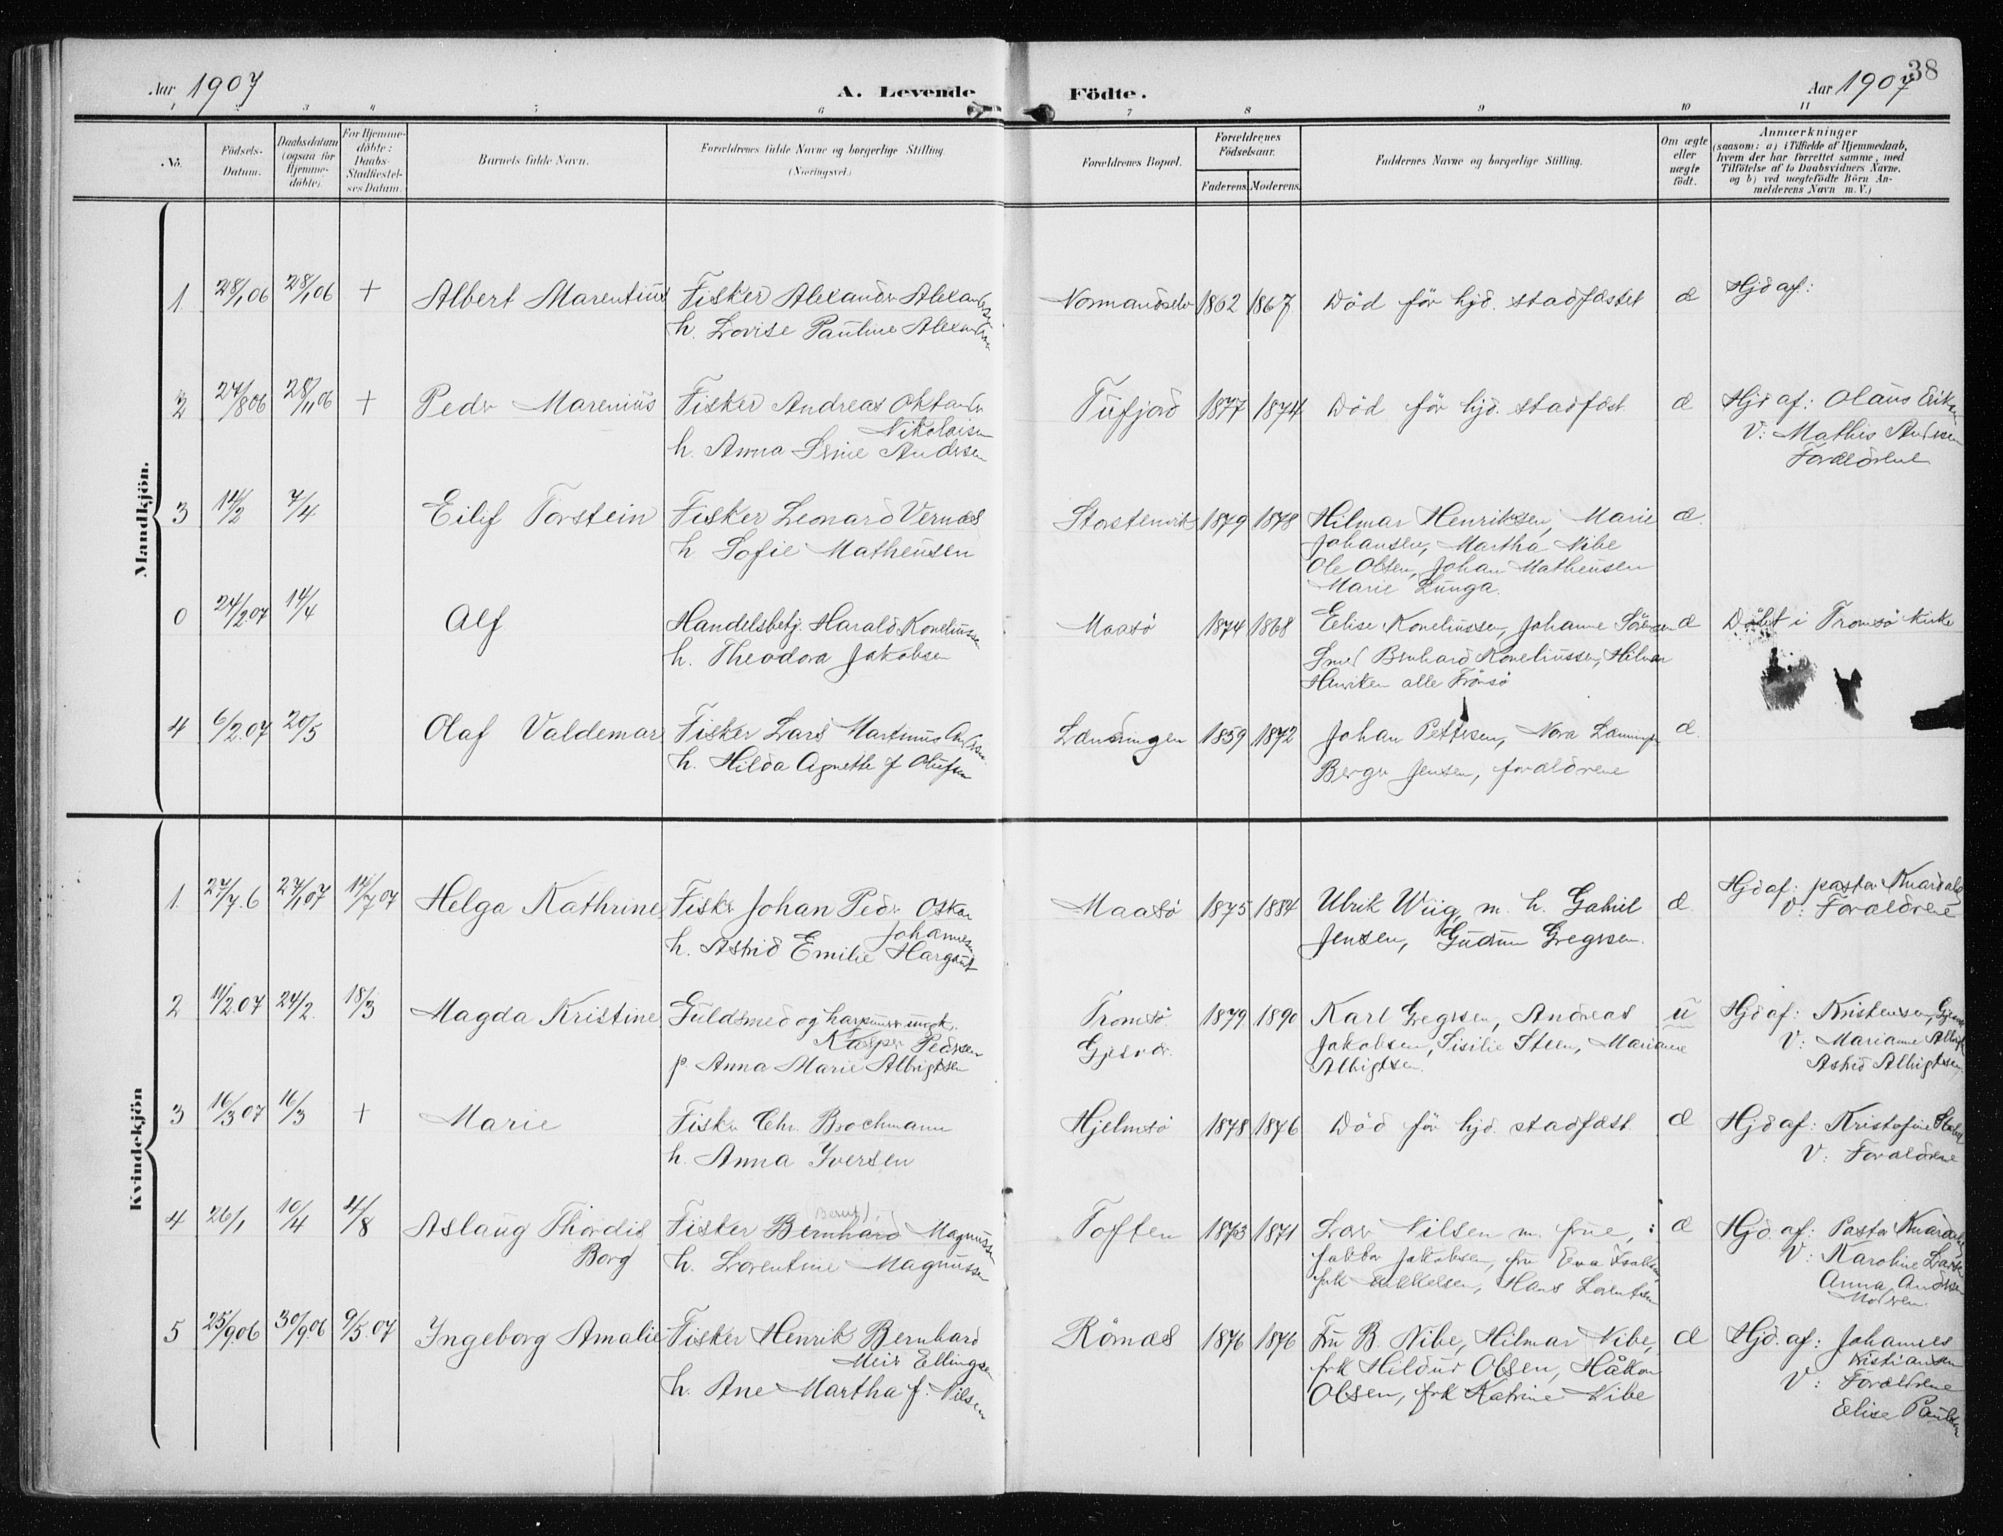 38
Aar 1907
A. Levende
Födte.
Aar 1907
1 2 3 4 5 6 7 8 9 10 11
No.
Födsels-Datum.
Daabsdatum (ogsaa for Hjemmedöbte).
For Hjemmedöbte: Daabs-Stadfæstelses Datum.
Barnets fulde Navn.
Forældrenes fulde Navne og borgerlige Stilling. (Næringsvei.)
Forældrenes Bopæl.
Forældrenes Födselsaar.
Faderens. Moderens.
Faddernes Navne og borgerlige Stilling.
Om ægte eller uægte födt.
Anmærkninger
(saasom: a) i Tilfælde af Hjemmedaab, hvem der har forrettet samme, med Tilföielse af to Daabsvidners Navne, og b) ved uægtefödte Börn Anmelderens Navn m. V.)
Mandkjön.
1 28/1 06 28/1 06 + Albert Marentius Fisker Alexander Alexandersen Normandset 1862 1867 Död för hjd. stadfæstet æ Hjd af:
h. Lovise Pauline Alexandersen
2 27/8 06 28/11 06 + Peder Marenius Fisker Andreas Oktander Tufjord 1877 1874 Död för hjd. stadfæst æ Hjd af: Olaus Eriksen
Nikolaisen V: Mathis Andersen
h. Anna Andersen Forældrene
3 14/2 7/4 Eilif Torstein Fisker Leonard Vernæs Storstenvik 1879 1878 Hilmar Henriksen, Marie æ.
h Sofie Matheusen Johansen, Martha Nibe
Ole Olsen, Johan Matheusen
Marie Lunga.
0 24/2 07 14/4 Alf Handelsbetj. Harald Korneliussen Maasö 1874 1868 Elise Korneliussen, Johanne Sörensen æ Döbt i Tromsö kirke
h. Theodora Jakobsen Smed Bernhard Korneliussen, Hilmar
Henriksen alle Tromsö
4 6/2 07 20/5 Olaf Valdemar Fisker Lars Martinus Andersen Lanningen 1859 1872 Johan Pettersen, Nora Lanningen æ.
h. Hilda Agnethe f Olufsen Berger Jensen, forældrene
Kvindekjön
1. 27/7 6 27/1 07 14/7 07 Helga Kathrine Fisker Johan Peder Oskar Maasö 1875 1884 Ulrik Wiig m. h. Gabriel æ Hjd af: pastor Knardahl
Johannesen V: Forældrene
h. Astrid Emilie Jensen, Gudrun Gregersen.
2 11/2 07 24/2. 18/3 Magda Kristine Guldsmed og Tromsö 1879 1890 Karl Gregersen, Andreas u Hjd af: Kristensen, Gjesvær
Kasper Pedersen Gjesvær. Jakobsen, Sisilie Steen, Marianne V: Marianne Albrigtsen
p. Anna Marie Albrigtsen Albrigtsen. Astrid Albrigtsen.
3 16/3 07 16/3 + Marie Fisker Chr. Brochmann Hjelmsö 1878 1876 Död för hjd. stadfæst æ Hjd af: Kristofine
h. Anna Iversen V: Forældrene
4 26/1 10/4 4/8 Aslaug Thordis Fisker Bernhard Magnussen Toften 1873 1871 Lars Nilsen m. frue, æ Hjd. af: Pastor Knardahl
Borg h. Lorentine Magnussen Jakobsen, fru Eva V: Karoline
frk Mikkelsen, Hans Lorentsen Anna Andersen
Moderen
5 25/9 06 30/9 06 9/5. 07 Ingeborg Amalie Fisker Henrik Bernhard Römæs 1876 1876 Fru B. Nibe, Hilmar Nibe, æ Hjd. af: Johannes
Meir Ellingsen frk Hildur Olsen, Håkon Kristiansen
h. Ane Martha f. Nilsen Olsen, frk Katrine Nibe V: Forældrene
Elise Paulsen